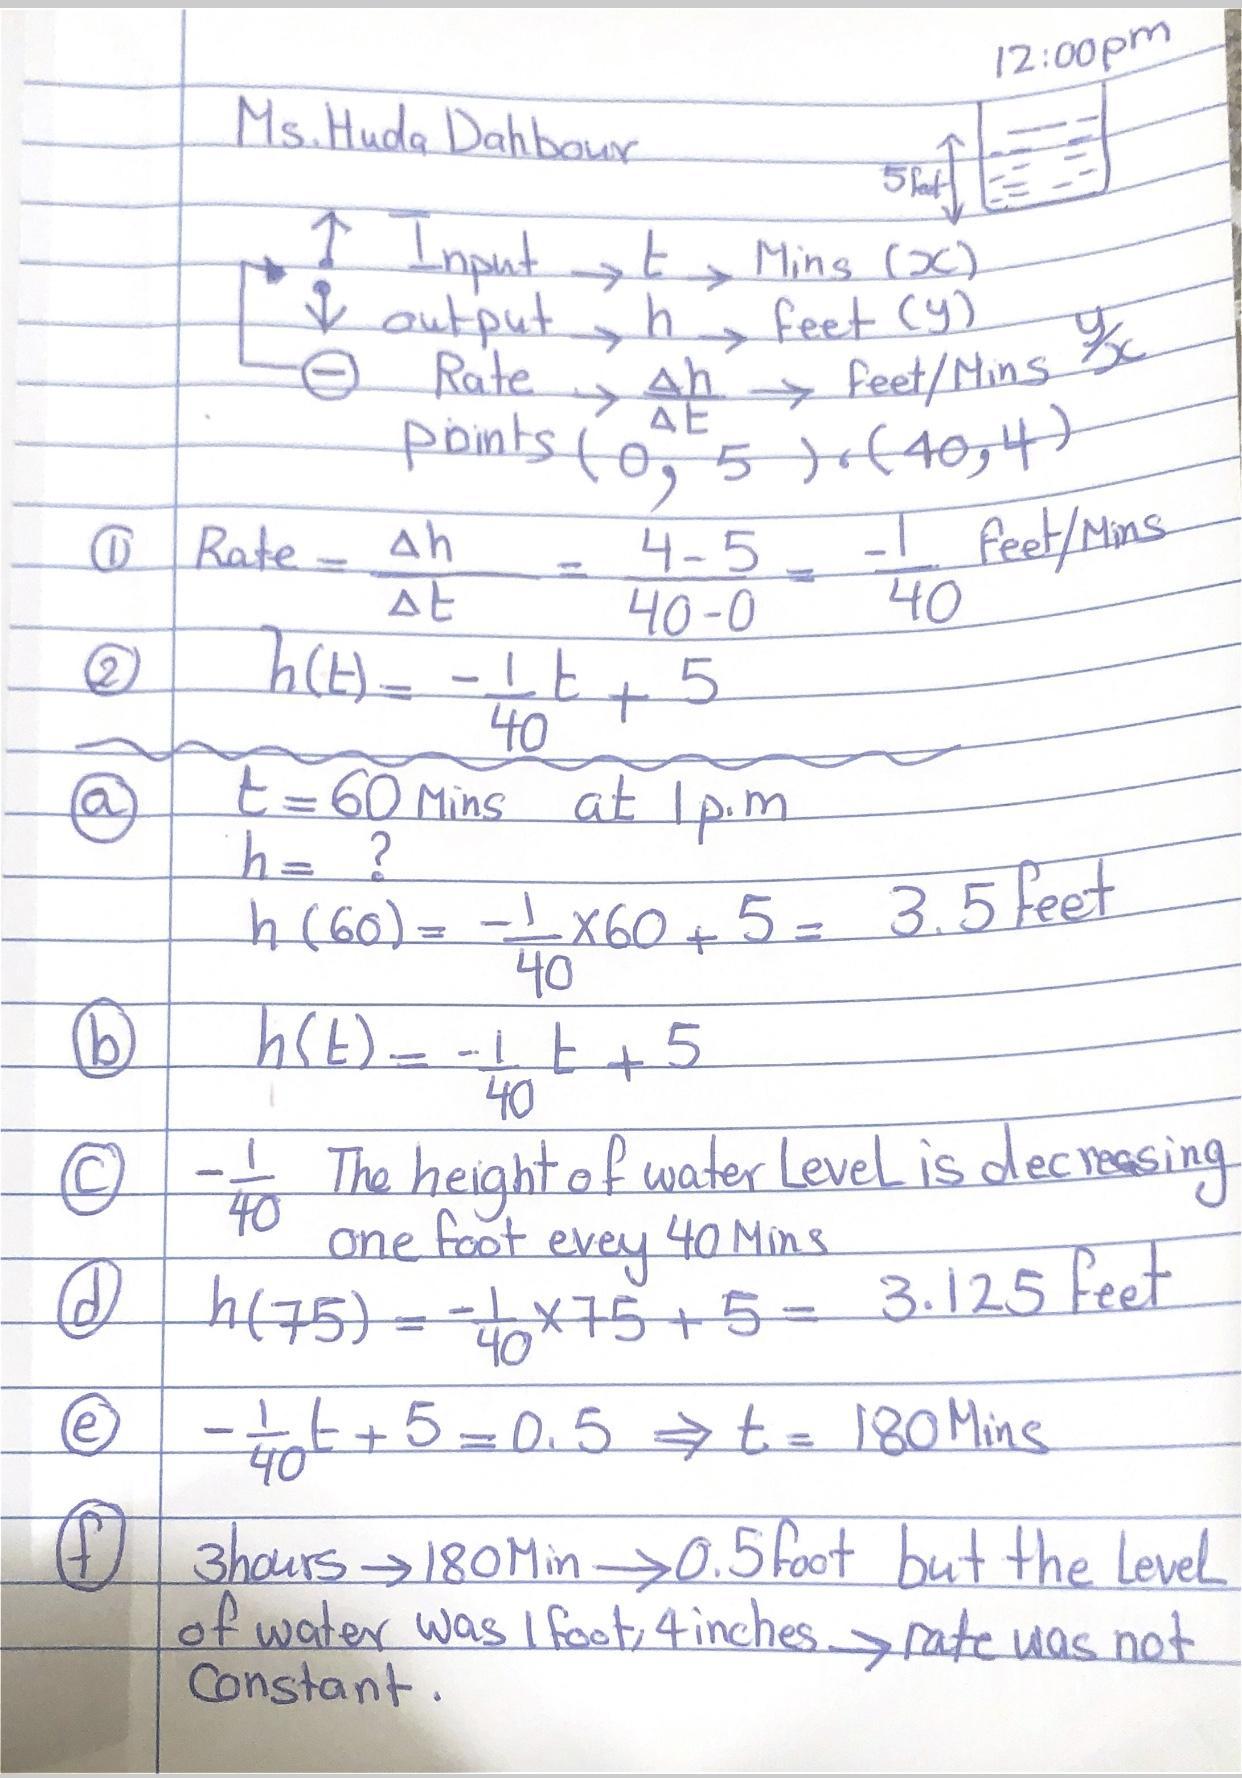 12:00pm
Ms. Huda Dahbour
5 feet
↑ Input → t → Mins (x)
↓ output → h → feet (y)
⊖ Rate → Δh/Δt → feet/Mins y/x
points (0, 5), (40, 4)
① Rate = Δh/Δt = 4-5/40-0 = -1/40 feet/Mins
② h(t) = -1/40 t + 5
ⓐ t = 60 Mins at 1 p.m
h = ?
h(60) = -1/40 ×60 + 5 = 3.5 feet
ⓑ h(t) = -1/40 t + 5
ⓒ -1/40 The height of water level is decreasing
one foot evey 40 Mins
ⓓ h(75) = -1/40 ×75 + 5 = 3.125 feet
ⓔ -1/40 t + 5 = 0.5 ⇒ t = 180 Mins
ⓕ 3hours → 180 Min → 0.5 foot but the level
of water was 1 foot, 4 inches → rate was not
constant.